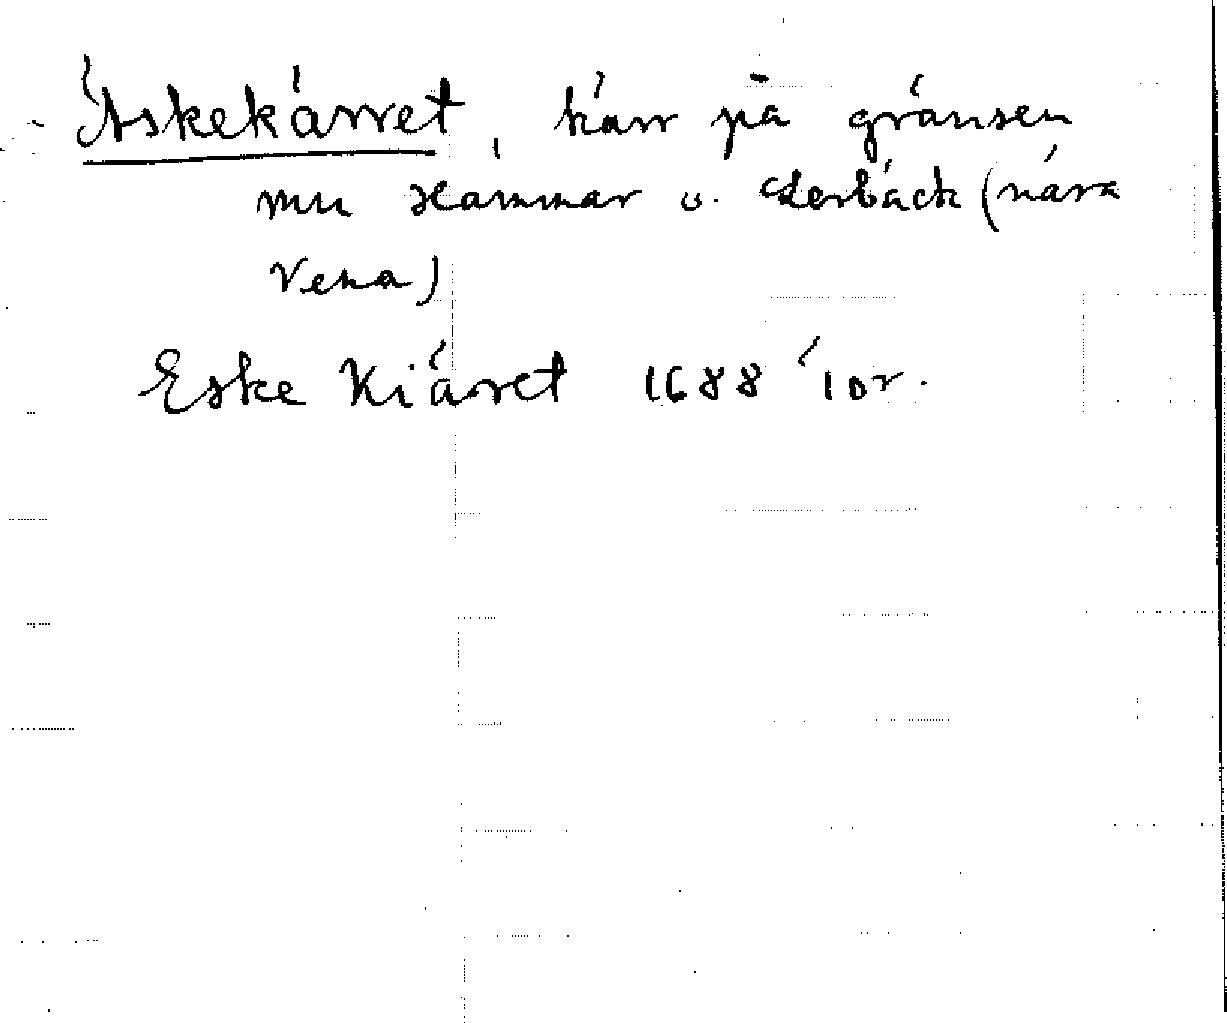 Äskekärret, kärr på gränsen
mn Hammar o. Lerbäck (nära
Vena)
Eske Kiärret 1688 'jor.